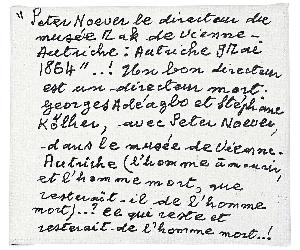 "Peter Noever le directeur du
musée Mak de Vienne-
Autriche: Autriche 9 Mai
1864"..! Un bon directeur
est un directeur mort:
georges Adéagbo et Stéphane
Kölher, avec Peter Noever,
dans le musée de Vienne-
Autriche (l'homme à mourir,
et l'homme mort, que
resterait-il de l'homme
mort)..? Ce qui reste et
resterait de l'homme mort..!